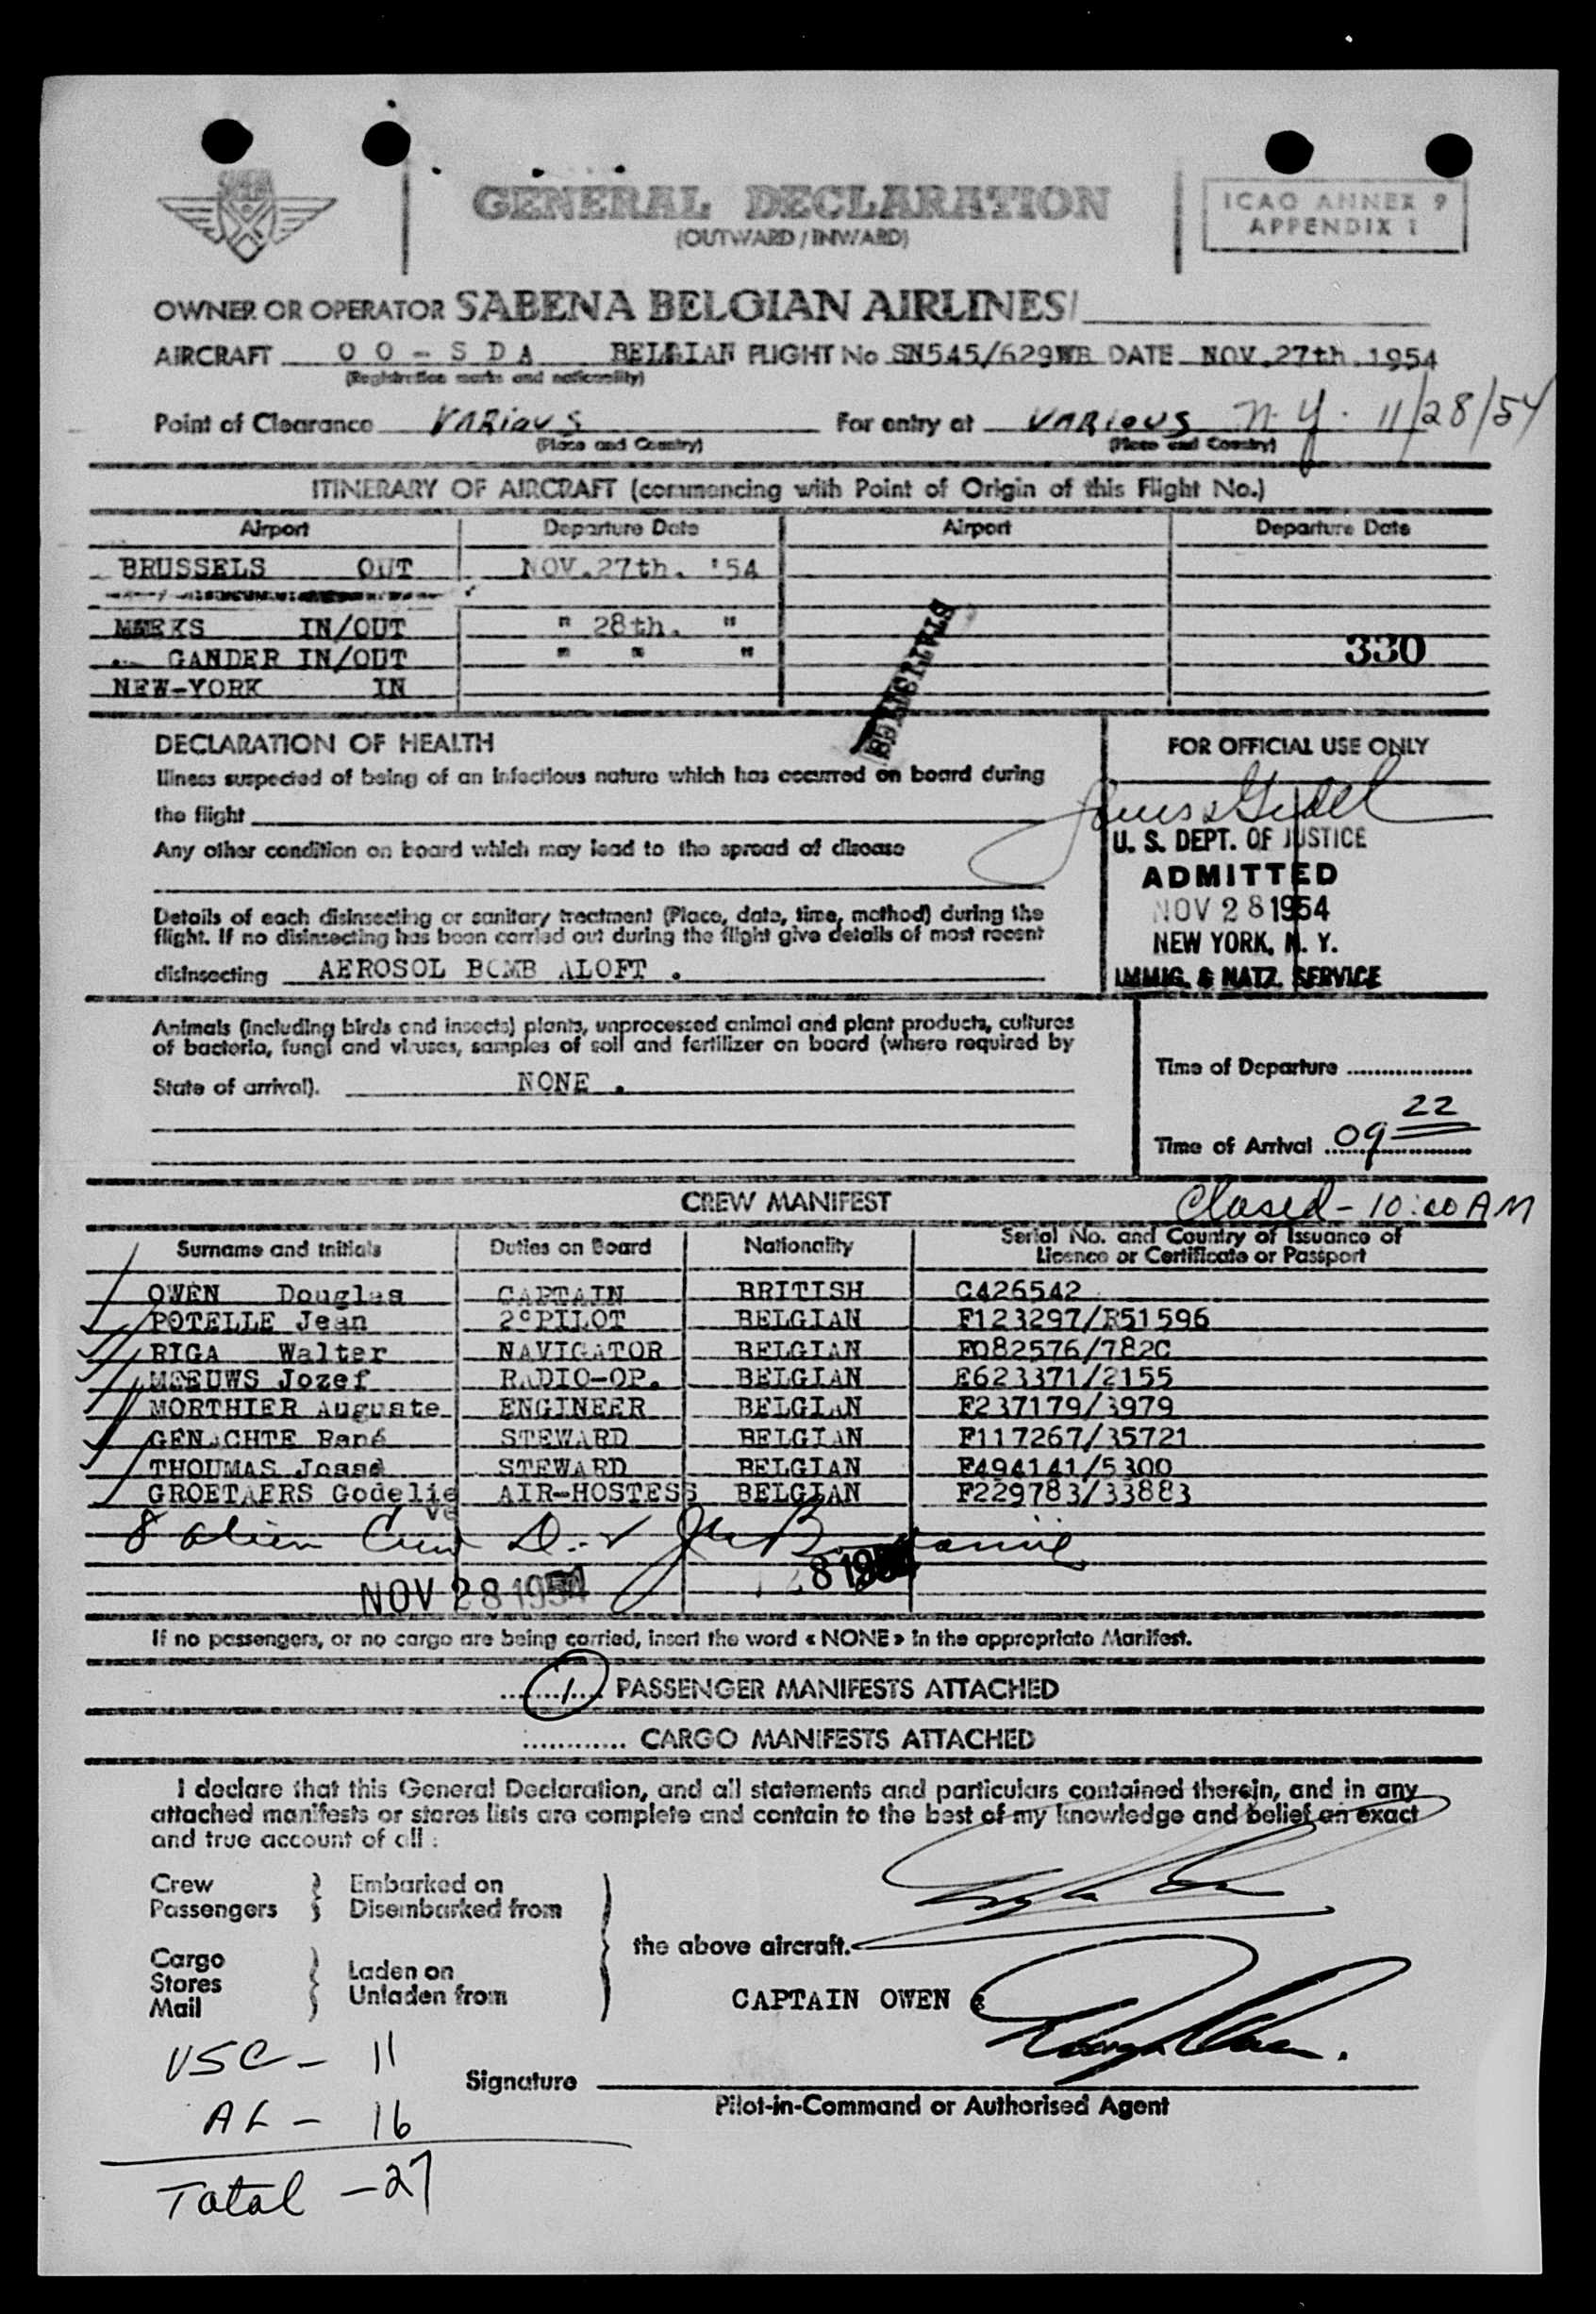 GENERAL DECLARATION
(OUTWARD / INWARD)
ICAO ANNEX 9
APPENDIX 1
OWNER OR OPERATOR SABENA BELGIAN AIRLINES
AIRCRAFT OO-SDA BELGIAN FLIGHT No SN545/629WB DATE NOV.27th.1954
(Registration marks and nationality)
Point of Clearance VARIOUS For entry at VARIOUS N.Y. 11/28/54
(Place and Country) (Place and Country)
ITINERARY OF AIRCRAFT (commencing with Point of Origin of this Flight No.)
Airport Departure Date Airport Departure Date
BRUSSELS OUT NOV.27th. '54
IN/OUT " 28th. "
GANDER IN/OUT " " "
330
NEW-YORK IN
STATISTICS
DECLARATION OF HEALTH
FOR OFFICIAL USE ONLY
Illness suspected of being of an infectious nature which has occurred on board during
the flight
Any other condition on board which may lead to the spread of disease
U. S. DEPT. OF JUSTICE
ADMITTED
NOV 28 1954
NEW YORK, N. Y.
IMMIG. & NATZ. SERVICE
Details of each disinsecting or sanitary treatment (Place, date, time, method) during the
flight. If no disinsecting has been carried out during the flight give details of most recent
disinsecting AEROSOL BOMB ALOFT .
Animals (including birds and insects) plants, unprocessed animal and plant products, cultures
of bacteria, fungi and viruses, samples of soil and fertilizer on board (where required by
State of arrival). NONE .
Time of Departure
Time of Arrival 09 22
CREW MANIFEST
Closed - 10:00 AM
Surname and initials Duties on Board Nationality Serial No. and Country of Issuance of
Licence or Certificate or Passport
OWEN Douglas CAPTAIN BRITISH C426542
POTELLE Jean 2°PILOT BELGIAN F123297/R51596
RIGA Walter NAVIGATOR BELGIAN F082576/782C
MEEUWS Jozef RADIO-OP. BELGIAN E623371/2155
MORTHIER Auguste ENGINEER BELGIAN F237179/3979
GENACHTE René STEWARD BELGIAN F117267/35721
THOUMAS Josse STEWARD BELGIAN F494141/5300
GROETAERS Godelie AIR-HOSTESS BELGIAN F229783/33883
ve
8 alien Crew
NOV 28 1954
28 1954
If no passengers, or no cargo are being carried, insert the word « NONE » in the appropriate Manifest.
1 PASSENGER MANIFESTS ATTACHED
CARGO MANIFESTS ATTACHED
I declare that this General Declaration, and all statements and particulars contained therein, and in any
attached manifests or stores lists are complete and contain to the best of my knowledge and belief an exact
and true account of all :
Crew
Passengers
Embarked on
Disembarked from
Cargo
Stores
Mail
Laden on
Unladen from
the above aircraft.
CAPTAIN OWEN
USC - 11
AL - 16
Total - 27
Signature
Pilot-in-Command or Authorised Agent